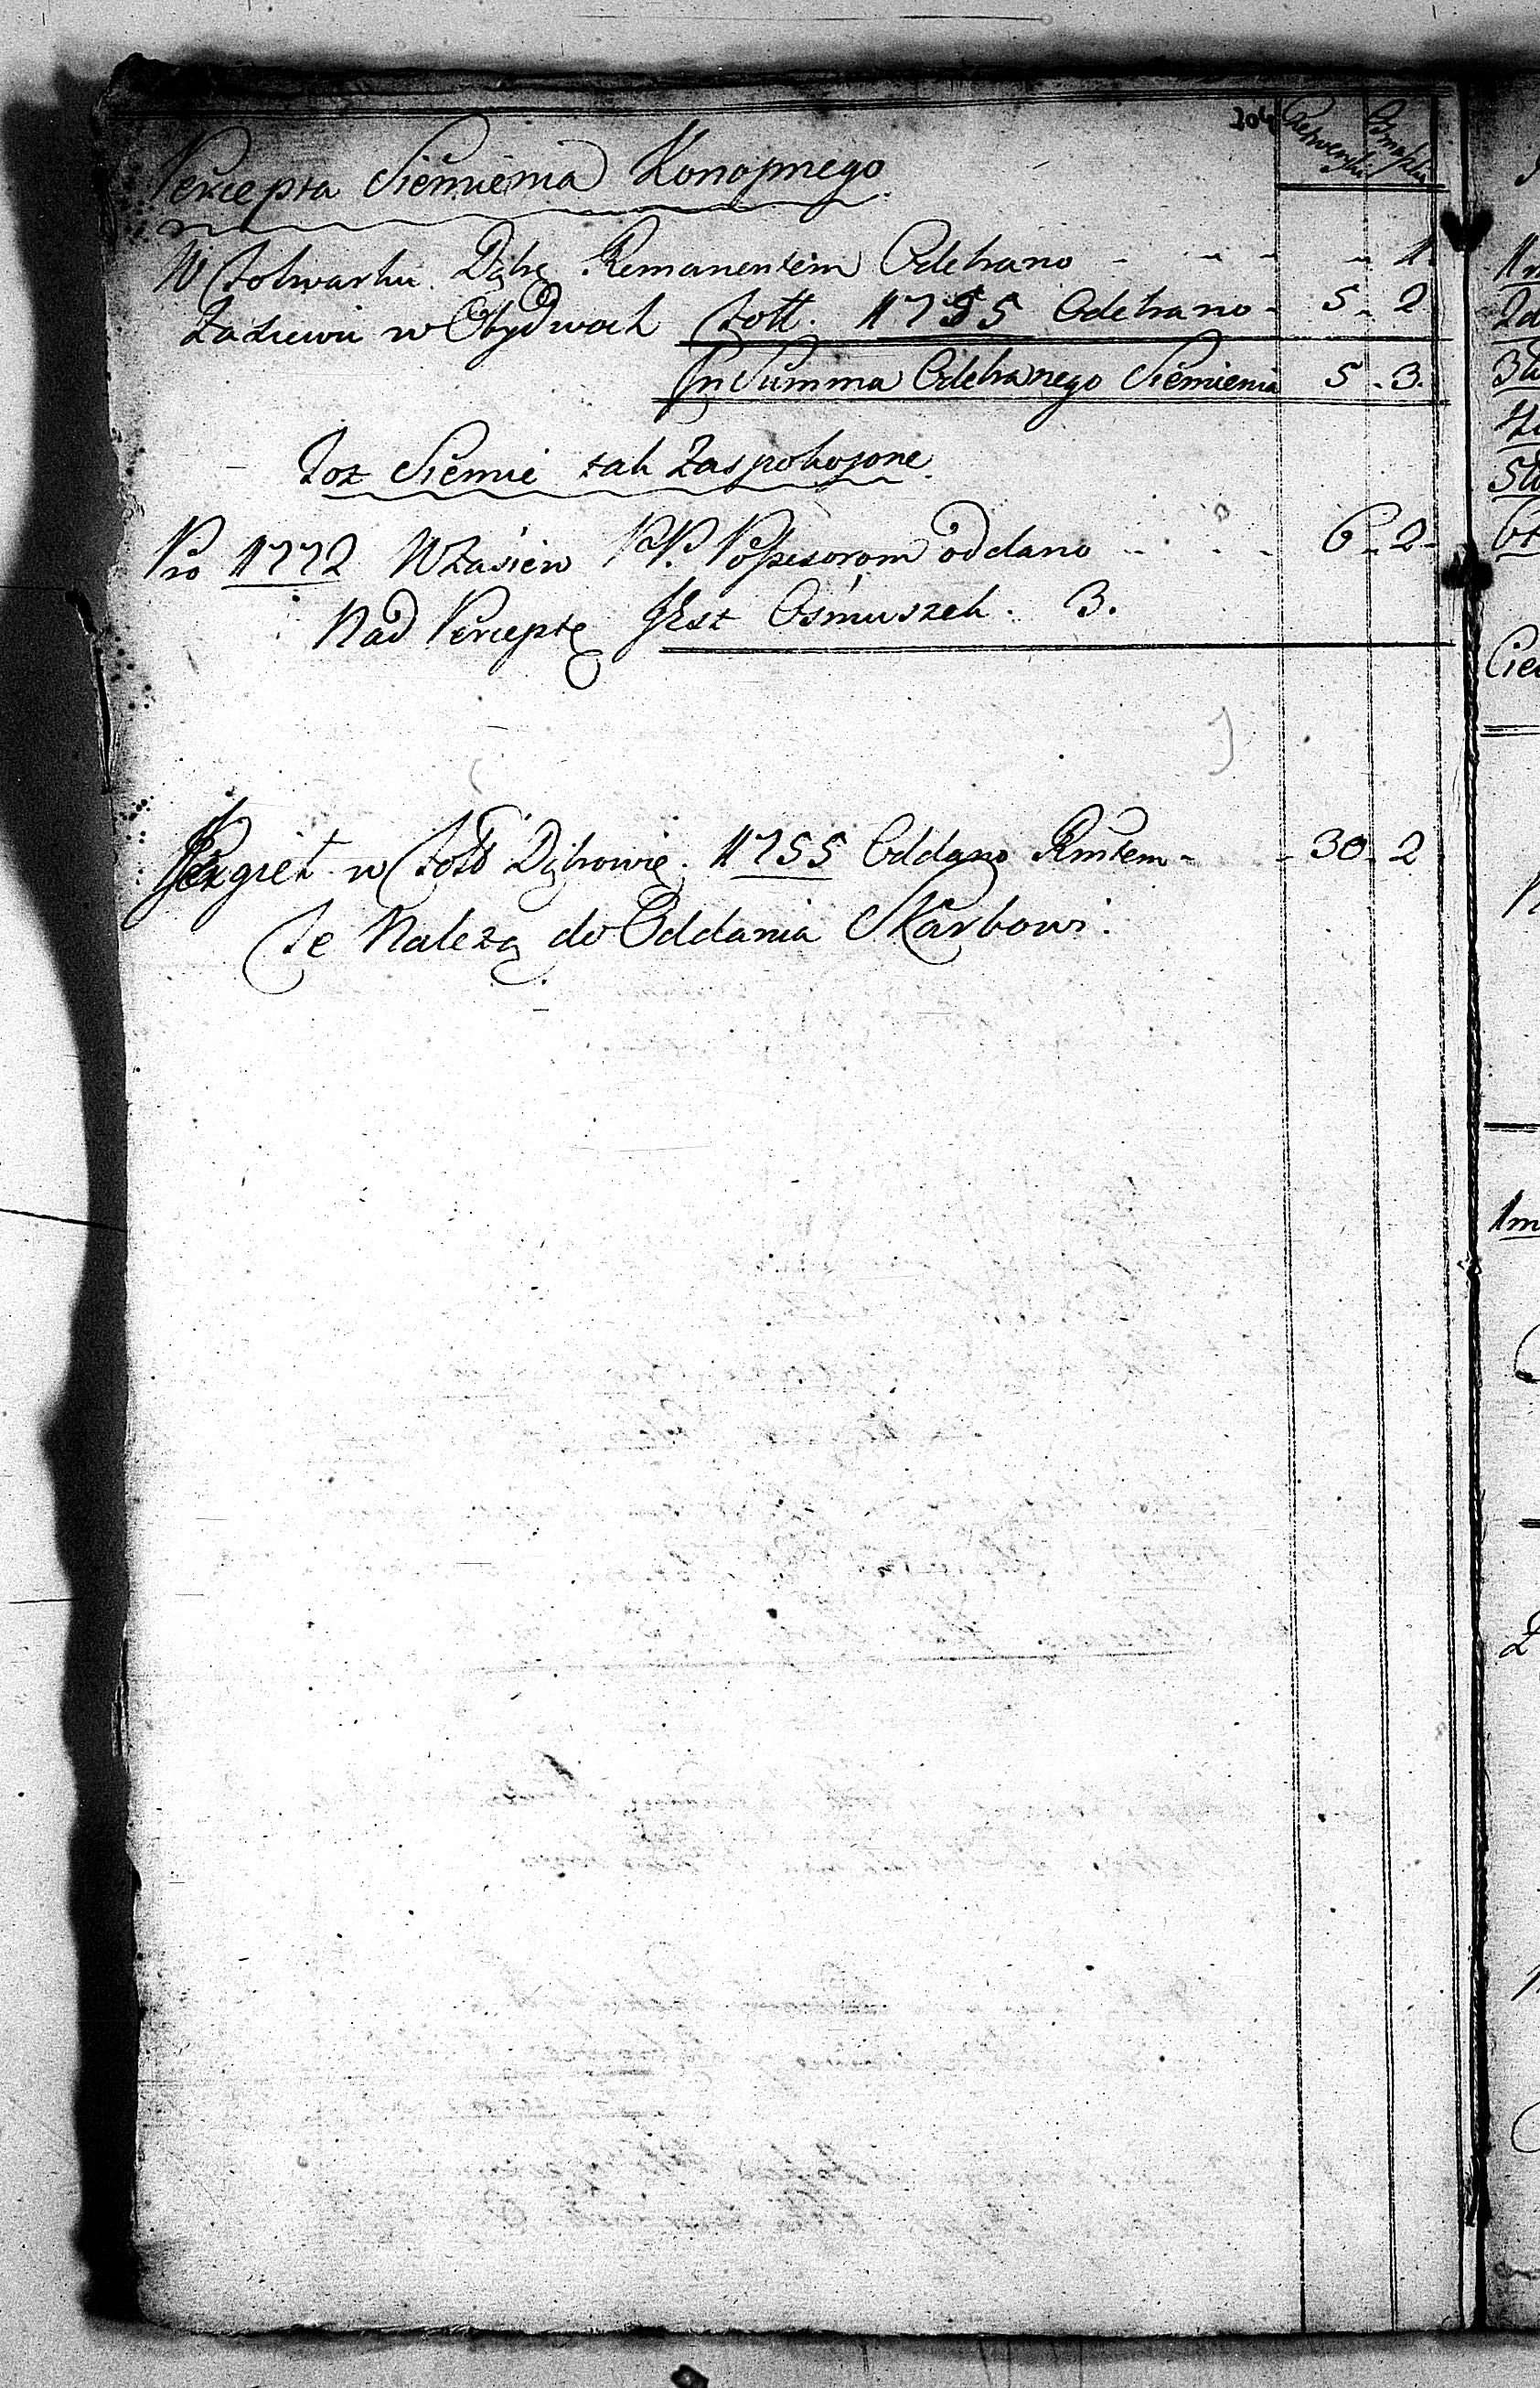 204 Czetweryki Ośmaszki
Percepta Siemienia Konopnego
W folwarku Dąbr. Remanentem Odebrano - - - - 1.
Zasiewu w Obydwoch foll. 1755 Odebrano - 5 - 2
In Summa Odebranego Siemienia 5 - 3.
Toż Siemie tak Zaspokojone
Pro 1772 W Zasiew PP. Possesorom oddano - - - 6 - 2 -
Nad Perceptę Jest Ośmuszek. 3.
w foll Dąbrowie. 1755 Oddano Rmtem - - 30 - 2
Te Należą do Oddania Skarbowi.